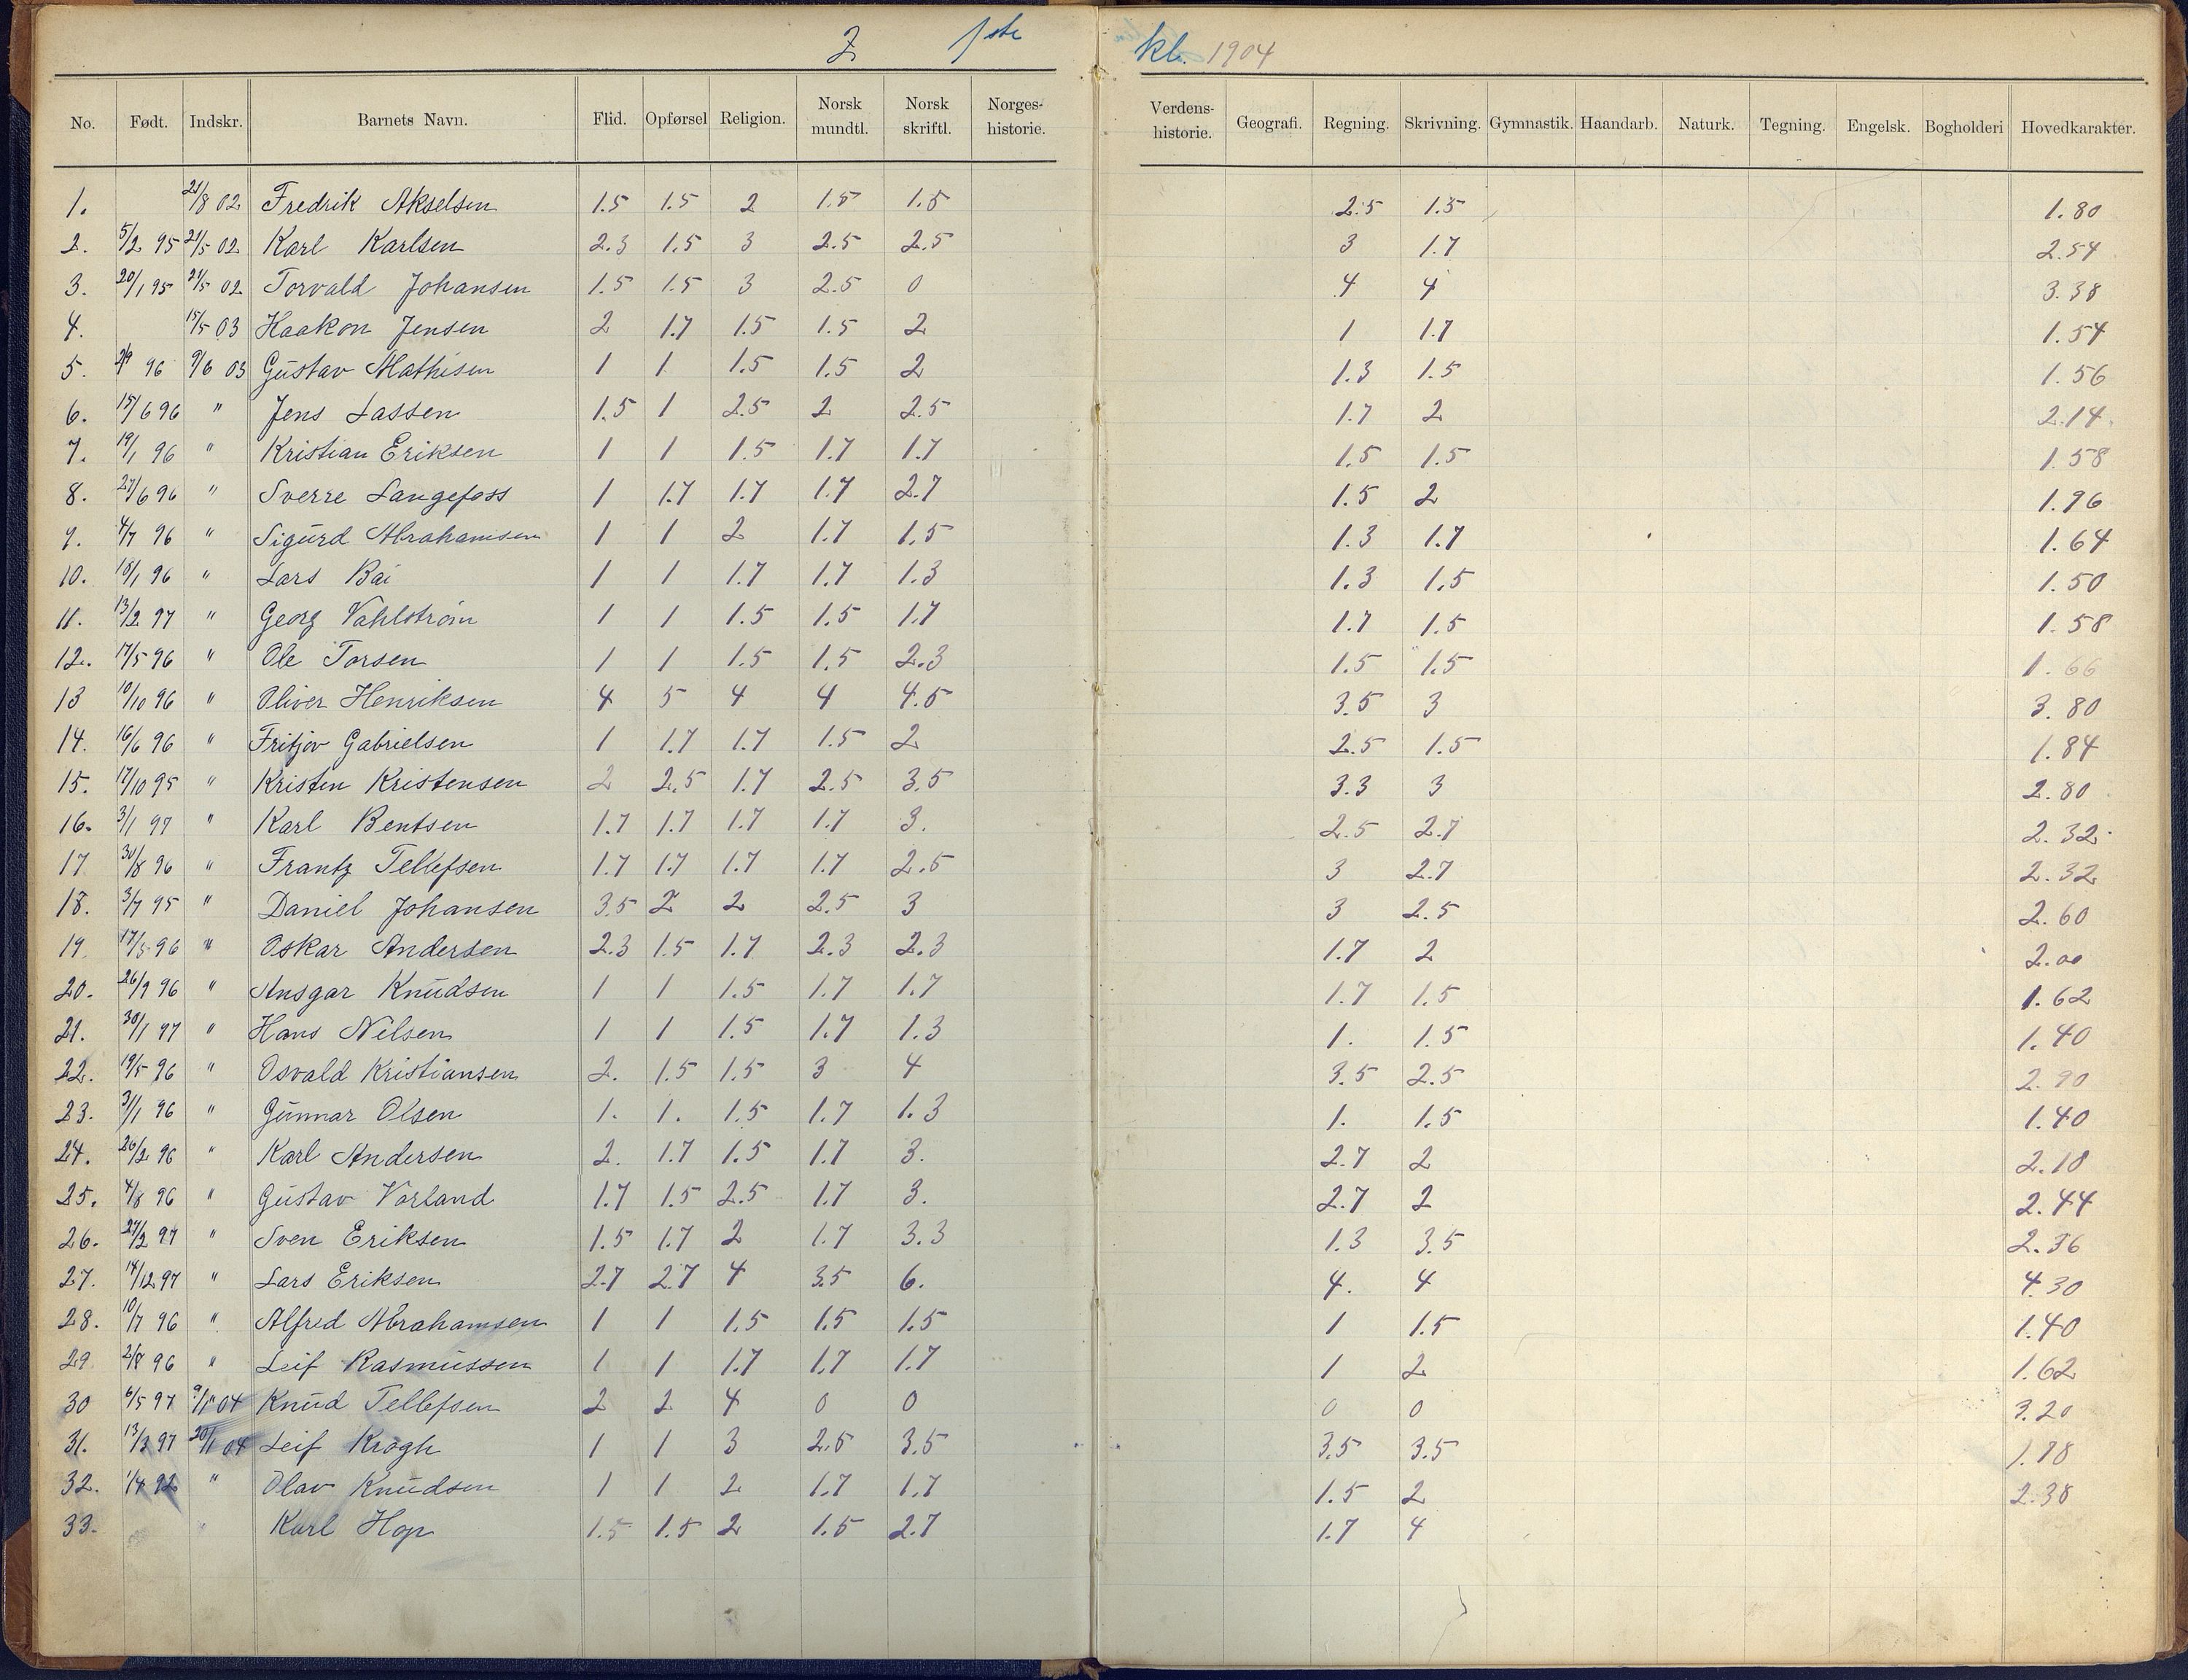 2 1ste kl. 1904
No. Født. Indskr. Barnets Navn. Flid. Opførsel Religion. Norsk mundtl. Norsk skriftl. Norges-historie. Verdens-historie. Geografi. Regning. Skrivning. Gymnastik. Haandarb. Naturk. Tegning. Engelsk. Bogholderi Hovedkarakter.
1. 21/8 02 Fredrik Akselsen 1.5 1.5 2 1.5 1.5 2.5 1.5 1.80
2. 5/2 95 21/5 02 Karl Karlsen 2.3 1.5 3 2.5 2.5 3 1.7 2.54
3. 20/1 95 21/5 02 Torvald Johansen 1.5 1.5 3 2.5 0 4 4 3.38
4. 15/5 03 Haakon Jensen 2 1.7 1.5 1.5 2 1 1.7 1.54
5. 96 9/6 03 Gustav Mathisen 1 1 1.5 1.5 2 1.3 1.5 1.56
6. 15/6 96 " Jens Lassen 1.5 1 2.5 2 2.5 1.7 2 2.14
7. 19/1 96 " Kristian Eriksen 1 1 1.5 1.7 1.7 1.5 1.5 1.58
8. 27/6 96 " Sverre Langefoss 1 1.7 1.7 1.7 2.7 1.5 2 1.96
9. 4/7 96 " Sigurd Abrahamsen 1 1 2 1.7 1.5 1.3 1.7 1.64
10. 18/1 96 " Lars Bai 1 1 1.7 1.7 1.3 1.3 1.5 1.50
11. 13/2 97 " Georg Vahlstrøm 1 1 1.5 1.5 1.7 1.7 1.5 1.58
12. 17/5 96 " Ole Torsen 1 1 1.5 1.5 2.3 1.5 1.5 1.66
13 10/10 96 " Oliver Henriksen 4 5 4 4 4.5 3.5 3 3.80
14. 16/6 96 " Fritjov Gabrielsen 1 1.7 1.7 1.5 2 2.5 1.5 1.84
15. 17/10 95 " Kristen Kristensen 2 2.5 1.7 2.5 3.5 3.3 3 2.80
16. 3/1 97 " Karl Bentsen 1.7 1.7 1.7 1.7 3. 2.5 2.7 2.32
17 30/8 96 " Frantz Tellefsen 1.7 1.7 1.7 1.7 2.5 3 2.7 2.32
18. 3/7 95 " Daniel Johansen 3.5 2 2 2.5 3 3 2.5 2.60
19. 17/5 96 " Oskar Andersen 2.3 1.5 1.7 2.3 2.3 1.7 2 2.00
20. 26/9 96 " Ansgar Knudsen 1 1 1.5 1.7 1.7 1.7 1.5 1.62
21. 30/1 97 " Hans Nilsen 1 1 1.5 1.7 1.3 1. 1.5 1.40
22. 19/5 96 " Osvald Kristiansen 2. 1.5 1.5 3 4 3.5 2.5 2.90
23. 31/1 96 " Gunnar Olsen 1. 1. 1.5 1.7 1.3 1. 1.5 1.40
24. 26/2 96 " Karl Andersen 2. 1.7 1.5 1.7 3. 2.7 2 2.18
25. 4/8 96 " Gustav Vorland 1.7 1.5 2.5 1.7 3. 2.7 2 2.44
26. 27/2 97 " Sven Eriksen 1.5 1.7 2 1.7 3.3 1.3 3.5 2.36
27. 14/12 97 " Lars Eriksen 2.7 2.7 4 3.5 6. 4. 4 4.30
28. 10/7 96 " Alfred Abrahamsen 1 1 1.5 1.5 1.5 1 1.5 1.40
29 2/8 96 " Leif Rasmussen 1 1 1.7 1.7 1.7 1 2 1.62
30 6/5 97 9/1 04 Knud Tellefsen 2 2 4 0 0 0 0 3.20
31. 13/3 97 20/1 04 Leif Krogh 1 1 3 2.5 3.5 3.5 3.5 1.78
32. 1/4 92 " Olav Knudsen 1 1 2 1.7 1.7 1.5 2 2.38
33. " Karl Hop 1.5 1.5 2 1.5 2.7 1.7 4